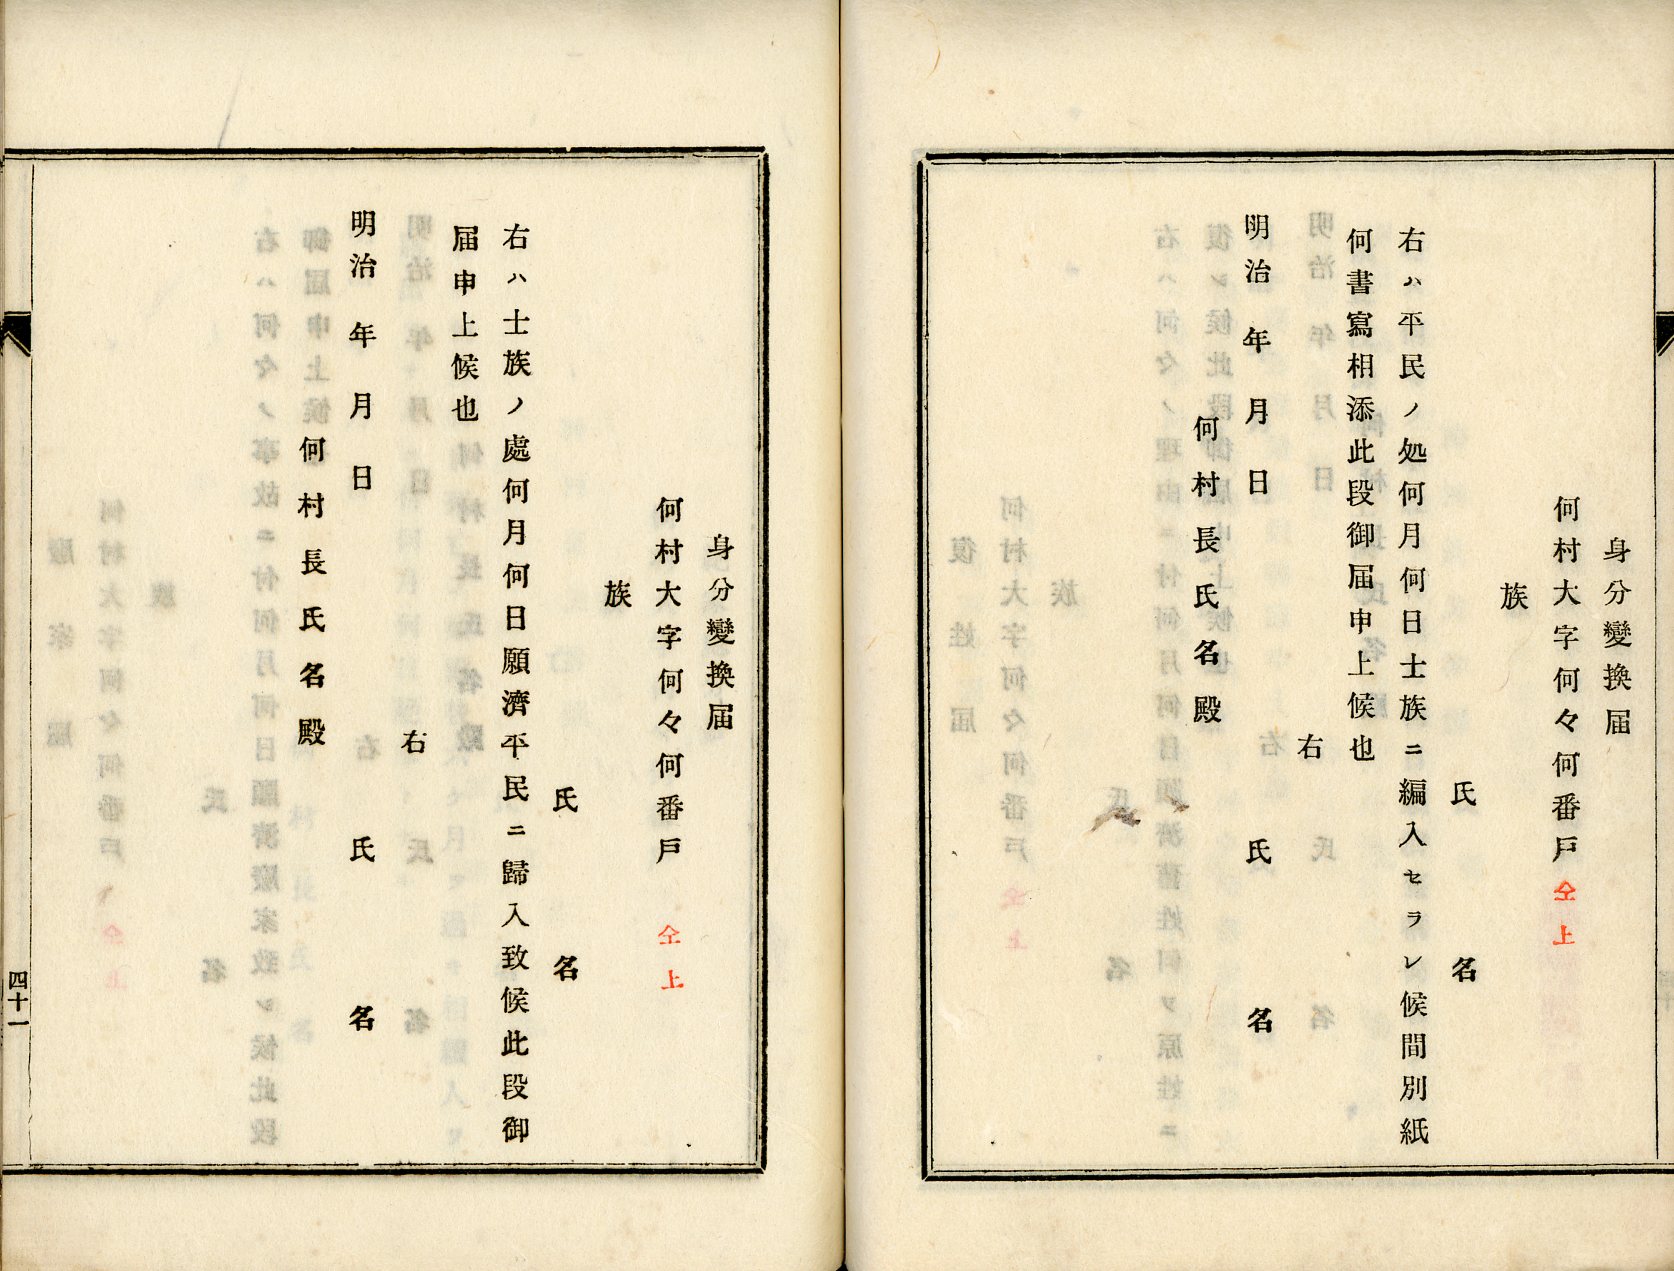 身分變換届
何村大字何々何番戸仝上
族
氏名
右ハ平民ノ処何月何日士族ニ編入セラレ候間別紙
何書寫相添此段御届申上候也
右
明治年月日氏名
何村長氏名殿
身分變換届
何村大字何々何番戸仝上
族
氏名
右ハ士族ノ處何月何日願濟平民ニ歸入致候此段御
届申上候也
右
明治年月日氏名
何村長氏名殿
四十一